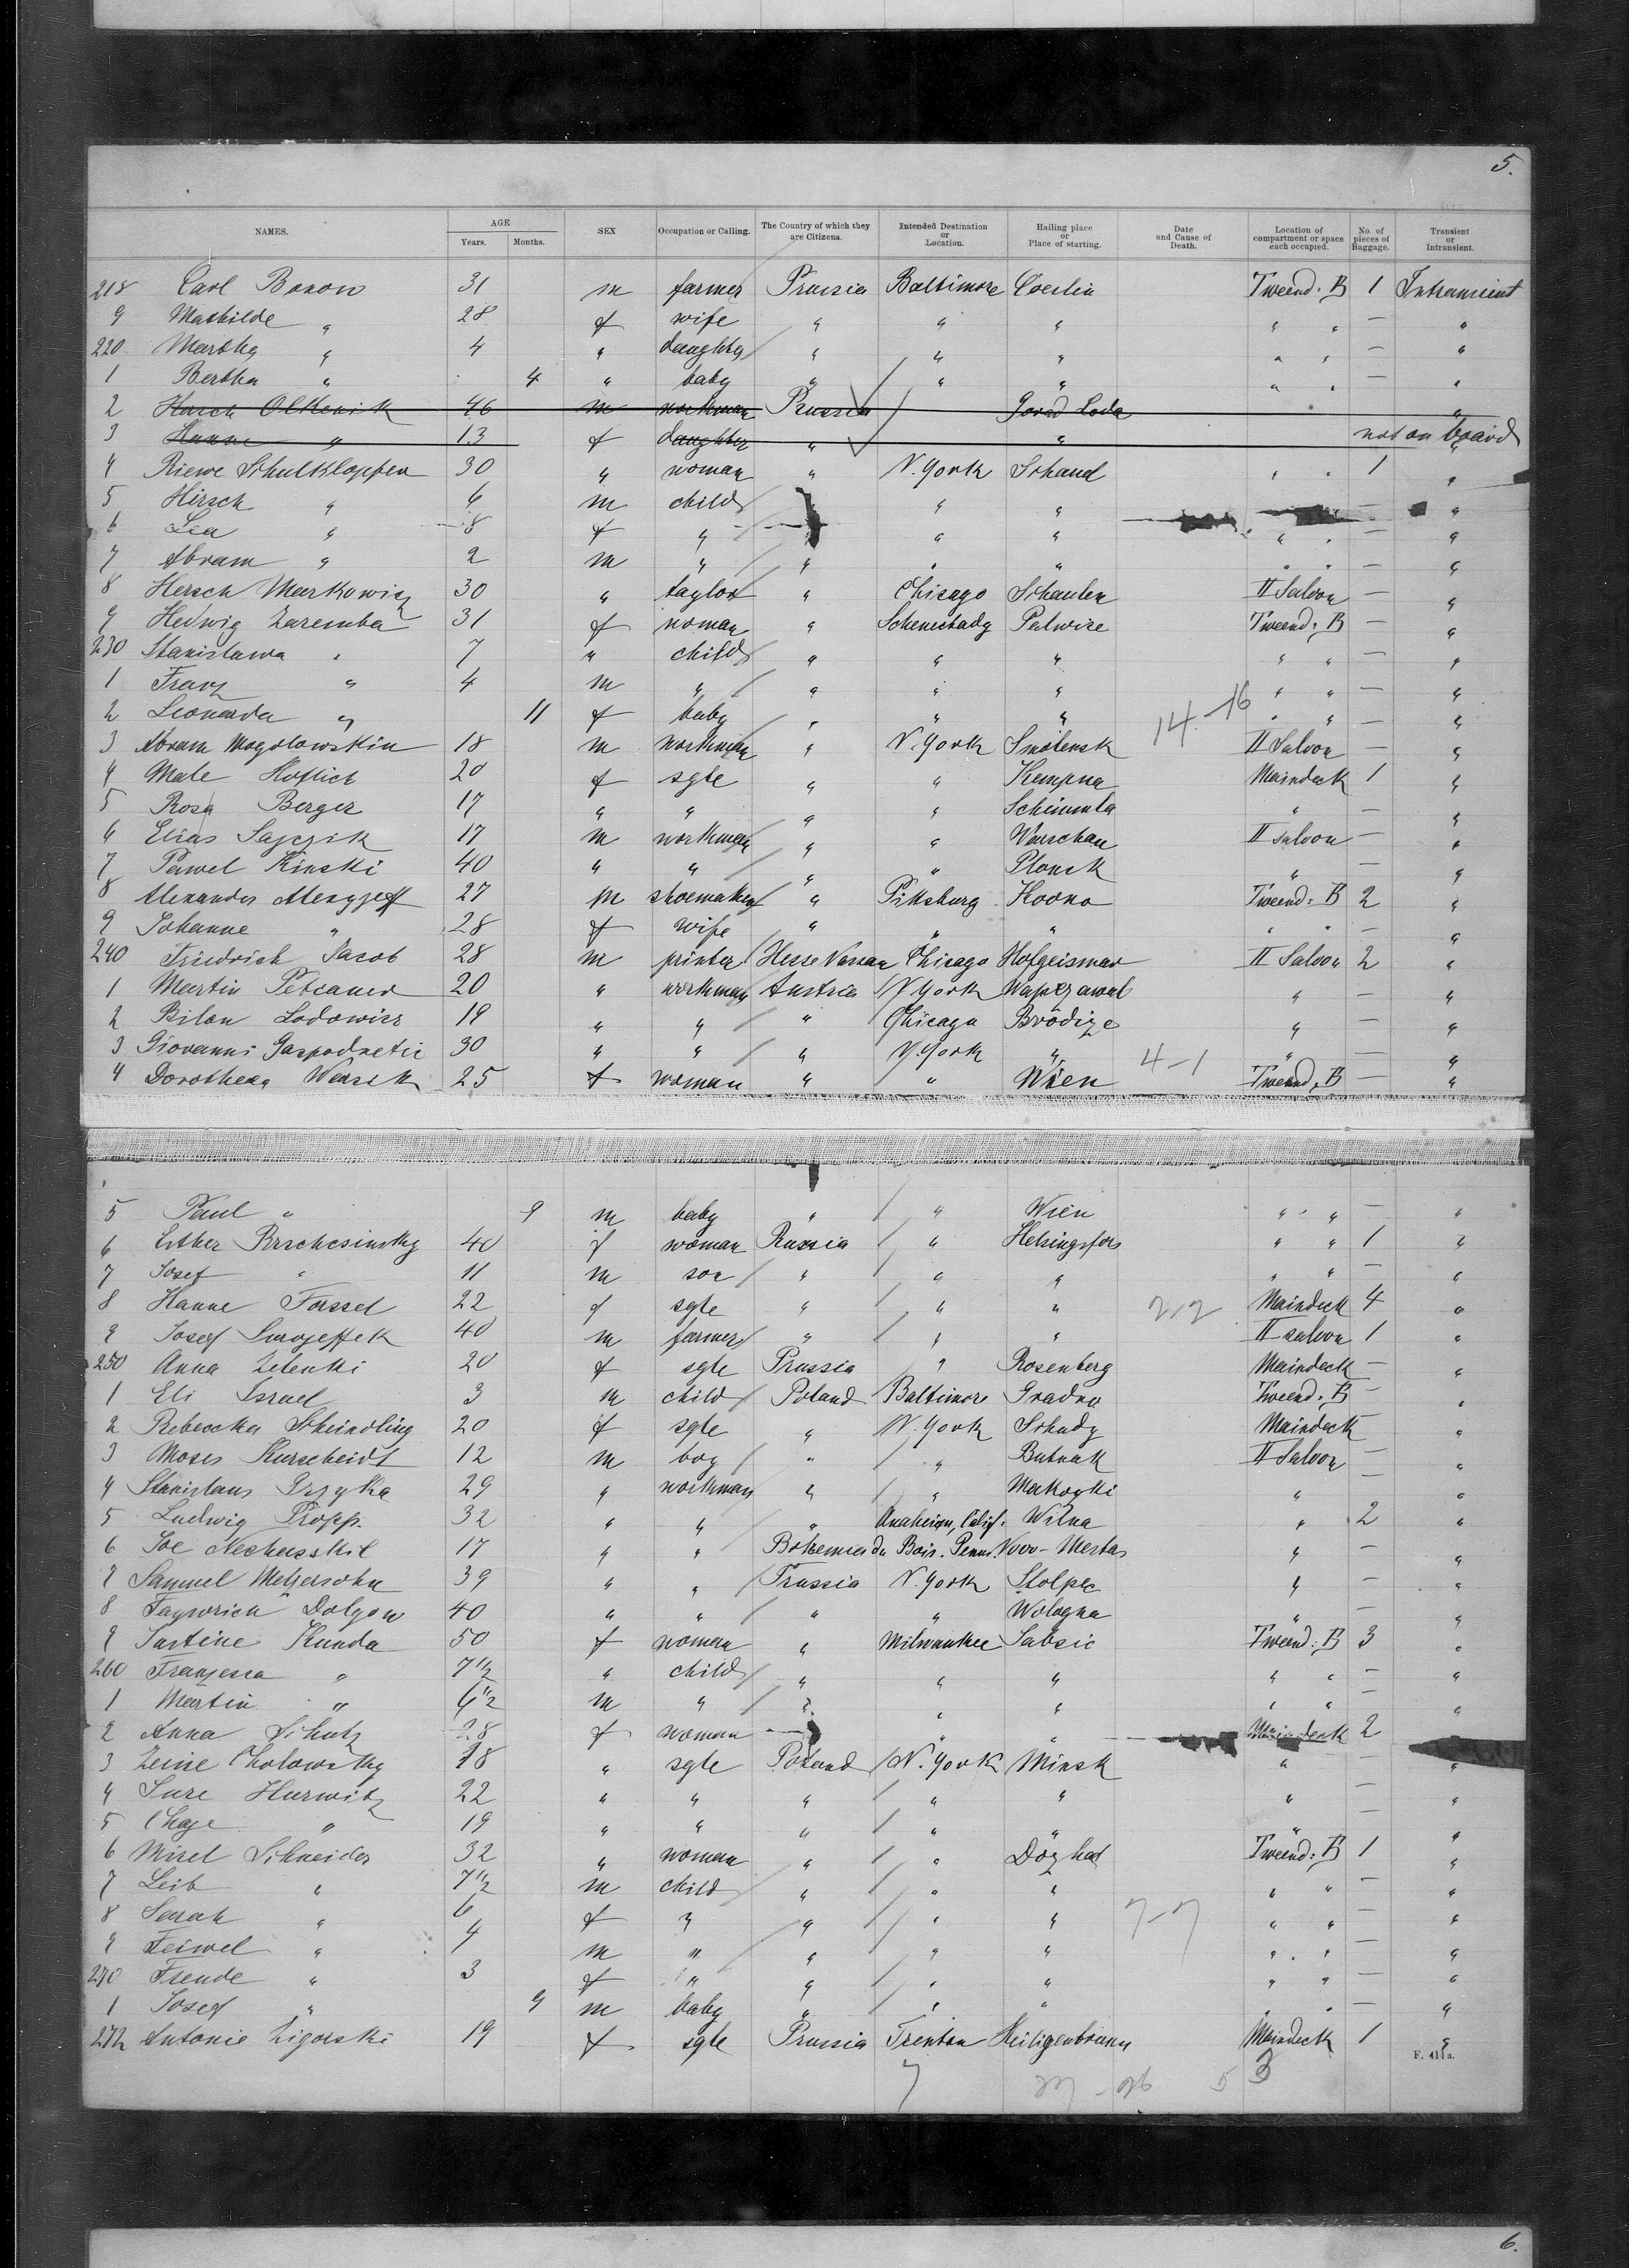 5.
NAMES. AGE Years. Months. SEX Occupation or Calling. The Country of which they are Citizens. Intended Destination or Location. Hailing place or Place of starting. Date and Cause of Death. Location of compartment or space each occupied. No. of pieces of Baggage. Transient or Intransient.
218 Carl Boxow 31 m farmer Prussia Baltimore Coeslin Tweend. B 1 Intransient
9 Mathilde " 28 f wife " " " " " — "
220 Martha " 4 " daughter " " " " " — "
1 Bertha " 4 " baby " " " " " — "
2 Hirsch Olkenik 46 m workman Russia Gorod Loda "
3 Hanne " 13 f daughter " " not on board "
4 Riewe Schulklopper 30 " woman " N. York Schaud " " 1 "
5 Hirsch " 6 m child " " — "
6 Lea " 8 f " " " " " — "
7 Abram " 2 m " " " " " " — "
8 Hersch Markowicz 30 " taylor " Chicago Schaulen II Saloon — "
9 Hedwig Zaremba 31 f woman " Schenectady Palwise Tweend. B — "
230 Stanislawa " 7 " child " " " " " — "
1 Franz " 4 m " " " " " " — "
2 Leonarda " 11 f baby " " " 14-16 " " — "
3 Abram Mogolowskin 18 m workman " N. York Smolensk II Saloon — "
4 Male Hoflich 20 f sgle " " Kempna Maindeck 1 "
5 Rosa Berger 17 " " " " Schimmla " — "
6 Elias Sajczik 17 m workman " " Warschau II Saloon — "
7 Pawel Kinski 40 " " " " Plonsk " — "
8 Alexander 27 m shoemaker " Pittsburg Kovno Tweend. B 2 "
9 Johanne " 28 f wife " " " " " "
240 Friedrich Jacob 28 m printer Hesse Nassau Chicago Hofgeismar II Saloon 2 "
1 Martin Petraner 20 " workman Austria N. York " — "
2 Bilon Lodowicz 19 " " " Chicago Brödize " — "
3 Giovanni Gaspodnetic 30 " " " N. York " 4-1 " — "
4 Dorothea Wensek 25 f woman " " Wien Tweend. B — "
5 Paul " 9 m baby " " Wien " " — "
6 Esther Brschesinsky 40 f woman Russia " Helsingfors " " 1 "
7 Josef " 11 m son " " " " " — "
8 Hanne Forssel 22 f sgle " " " 2,2 Maindeck 4 "
9 Josef 40 m farmer " " " II saloon 1 "
250 Anna Zelenki 20 f sgle Prussia " Rosenberg Maindeck — "
1 Eli Israel 3 m child Poland Baltimore Gradna Tweend. B — "
2 Rebecka Scheindling 20 f sgle " N. York Schady Maindeck "
3 Moses Kurscheidt 12 m boy " " Butnak II Saloon — "
4 Stanislaus 29 " workman " " Makoyki " — "
5 Ludwig Propp. 32 " " " Anaheim, Calif. Wilna " 2 "
6 Joe 17 " " Bohemia du Bois. Penns. Novo-Mestas " — "
7 Samuel Metzersohn 39 " " Prussia N. York Stolpec " — "
8 Dolgow 40 " " " " Wologna " — "
9 Justine Kunda 50 f woman " Milwaukee Sabsic Tweend. B 3 "
260 Franzesca " 7 1/2 " child " " " " " — "
1 Martin " 6 1/2 m " " " " " — "
2 Anna Schulz 28 f woman " " Maindeck 2
3 Zeine Cholowsky 18 " sgle Poland N. York Minsk " — "
4 Sure Hurwitz 22 " " " " " " — "
5 Chaje " 19 " " " " " " — "
6 Mirel Schneider 32 " woman " " Dozhed Tweend. B 1 "
7 Leib " 7 1/2 m child " " " " " — "
8 Sarah " 6 f " " " " 7-7 " " — "
9 Feiwel " 4 m " " " " " " — "
270 Freude " 3 f " " " " " " — "
1 Josef " 9 m baby " " " " " — "
272 Antonie Zigorski 19 f sgle Prussia Trenton Heiligenbrunn Maindeck 1 "
F. 411a.
6.